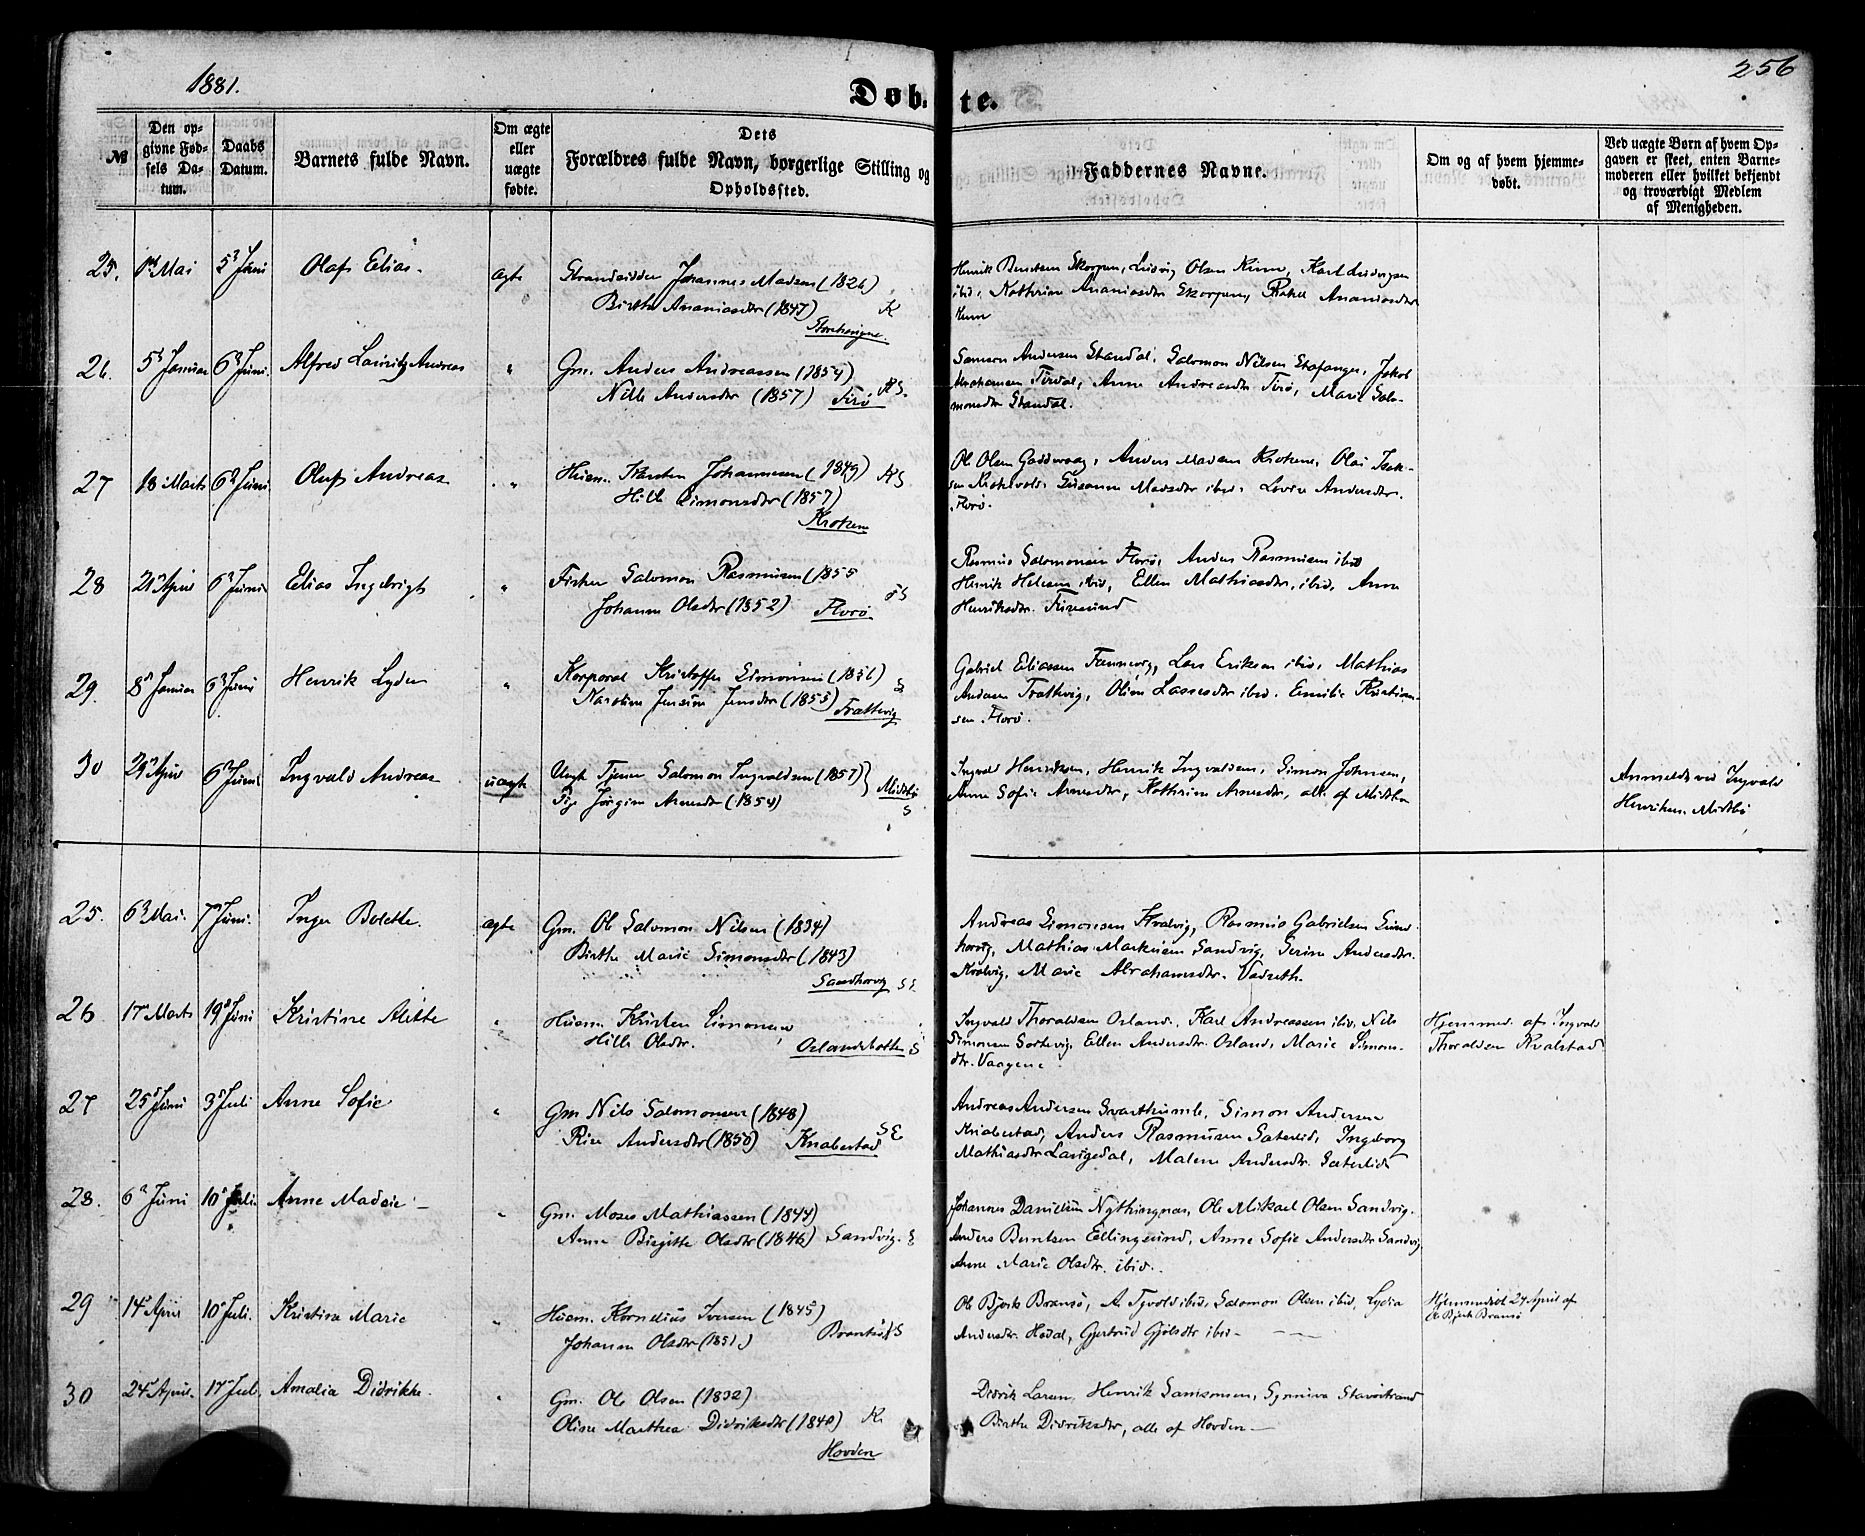 1881.
Døbte.
256
№
Den opgivne Fødsels Datum.
Daabs Datum.
Barnets fulde Navn.
Om ægte eller uægte fødte.
Dets Forældres fulde Navn, borgerlige Stilling og Opholdssted.
Faddernes Navne.
Om og af hvem hjemmedøbt.
Ved uægte Børn af hvem Opgaven er skeet, enten Barnemoderen eller hvilket bekjendt og troværdigt Medlem af Menigheden.
25. Mai 5 Juni Olaf Elias. ægte
Strandsidder Johannes Madsen (1826)
Birthe Ananiasdtr (1847) K
Henrik Berntsen Skorpen, Ludvig Olsen Kinn, Karl Ludvigsen
ibid, Kathrine Ananiasdtr Skorpen, Rakel Ananiasdtr
Kinn
26. 5 Januar 6 Juni. Alfred Lauritz Andreas "
Gm. Anders Andreassen (1854)
Nille Andersdtr (1857) Tirø KS.
Samson Andersen Standal, Salomon Nilsen Stafanger, Jakob
Abrahamsen Tirdal, Anne Andreasdtr Tirø, Marie Salo-
monsdtr Standal.
27 18 Marts 6 Juni Oluf Andreas "
Huusm. Karsten Johannesen (1849) KS
Hille Simonsdtr (1857)
Krokene
Ole Olsen, Anders Madsen Krokene, Olai Isak-
sen, Susanne Madsdtr ibid, Lovise Andersdtr.
Florø.
28 21 April 6 Juni Elias Ingebrigt "
Fisker Salomon Rasmusen (1855
Johanne Olsdtr (1852) Florø
Rasmus Salomonsen Florø, Anders Rasmusen ibid
Henrik Helesen ibid, Ellen Mathiasdtr, ibid, Anne
Henriksdtr.
29. 8 Januar 6 Juni Henrik Lyder "
Korporal Kristoffer Simonsen (1856) S
Karoline Jensine Jensdtr (1855) Trættevig
Gabriel Eliassen, Lars Eriksen ibid, Mathias
Andersen Trættevig, Oline Lassesdtr ibid. Emilie Kristian-
sen. Florø.
30 29 April 6 Juni Ingvald Andreas uægte
Ungk Tjener Salomon Ingvaldsen (1857)
Pige Jørgine Arnesdtr (1854) Midtbø
S
Ingvald Henriksen, Henrik Ingvaldsen, Simon Johnsen,
Anne Sofie Arnesdtr, Kathrine Arnesdtr, alle af Midtbø
Anmeldt ved Ingvald
Henriksen Midtbø
25. 6 Mai. 7 Juni. Inger Bolette. ægte
Gm. Ole Salomon Nilsen (1834)
Birthe Marie Simonsdtr (1843)
Sandhovig SE
Andreas Simonsen Kvalvig, Rasmus Gabrielsen Sand-
hovig, Mathias Markusen Sandvig, Serine Andersdtr.
Kvalvig, Marie Abrahamsdtr. Vadseth.
26 17 Marts 19 Juni Kristine Alette "
Huusm Kristen Simonsen
Hille Olsdtr. Oslandsbotten S
Ingvald Thoraldsen Osland, Karl Andreassen ibid, Nils
Simonsen Sørtevig, Ellen Andersdtr. Osland, Marie Simons-
dtr. Vaagene
Hjemmed. af Ingvald
Thoraldsen Kvalstad
27 25 Juni 3 Juli Anne Sofie "
Gm Nils Salomonsen (1848)
Rise Andersdtr (1850) Knabestad SE
Andreas Andersen Svarthumle, Simon Andersen
Knabestad, Anders Rasmusen Sæterlid, Ingeborg
Mathiasdtr Langedal, Malene Andersdtr. Sæterlid
28. 6 Juni 10 Juli. Anne Madsie "
Gm. Moses Mathiassen (1844)
Anne Birgitte Olsdtr (1846) Sandvig. E
Johannes Danielsen Nythingnæs, Ole Mikael Olsen Sandvig.
Anders Berntsen Ellingsund, Anne Sofie Andersdtr Sandvig,
Anne Marie Olsdtr. ibid.
29 14 April 10 Juli. Kristine Marie "
Huusm. Kornelius Iversen (1845)
Johanne Olsdtr (1851) S
Ole Bjørk Bransø, A. Tyvold ibid, Salomon Olsen ibid, Lydia
Andersdtr. Hødal, Gjertrud Gjølsdtr ibid
Hjemmedøbt 24 April af
Ole Bjørk Bransø
30 24 April. 17 Juli Amalia Didrikke. "
Gm. Ole Olsen (1832)
Oline Marthea Didriksdtr (1840) K.
Hovden
Didrik Larsen, Henrik Samsonsen, Synneva Stavøstrand
Birthe Didriksdtr, alle af Hovden